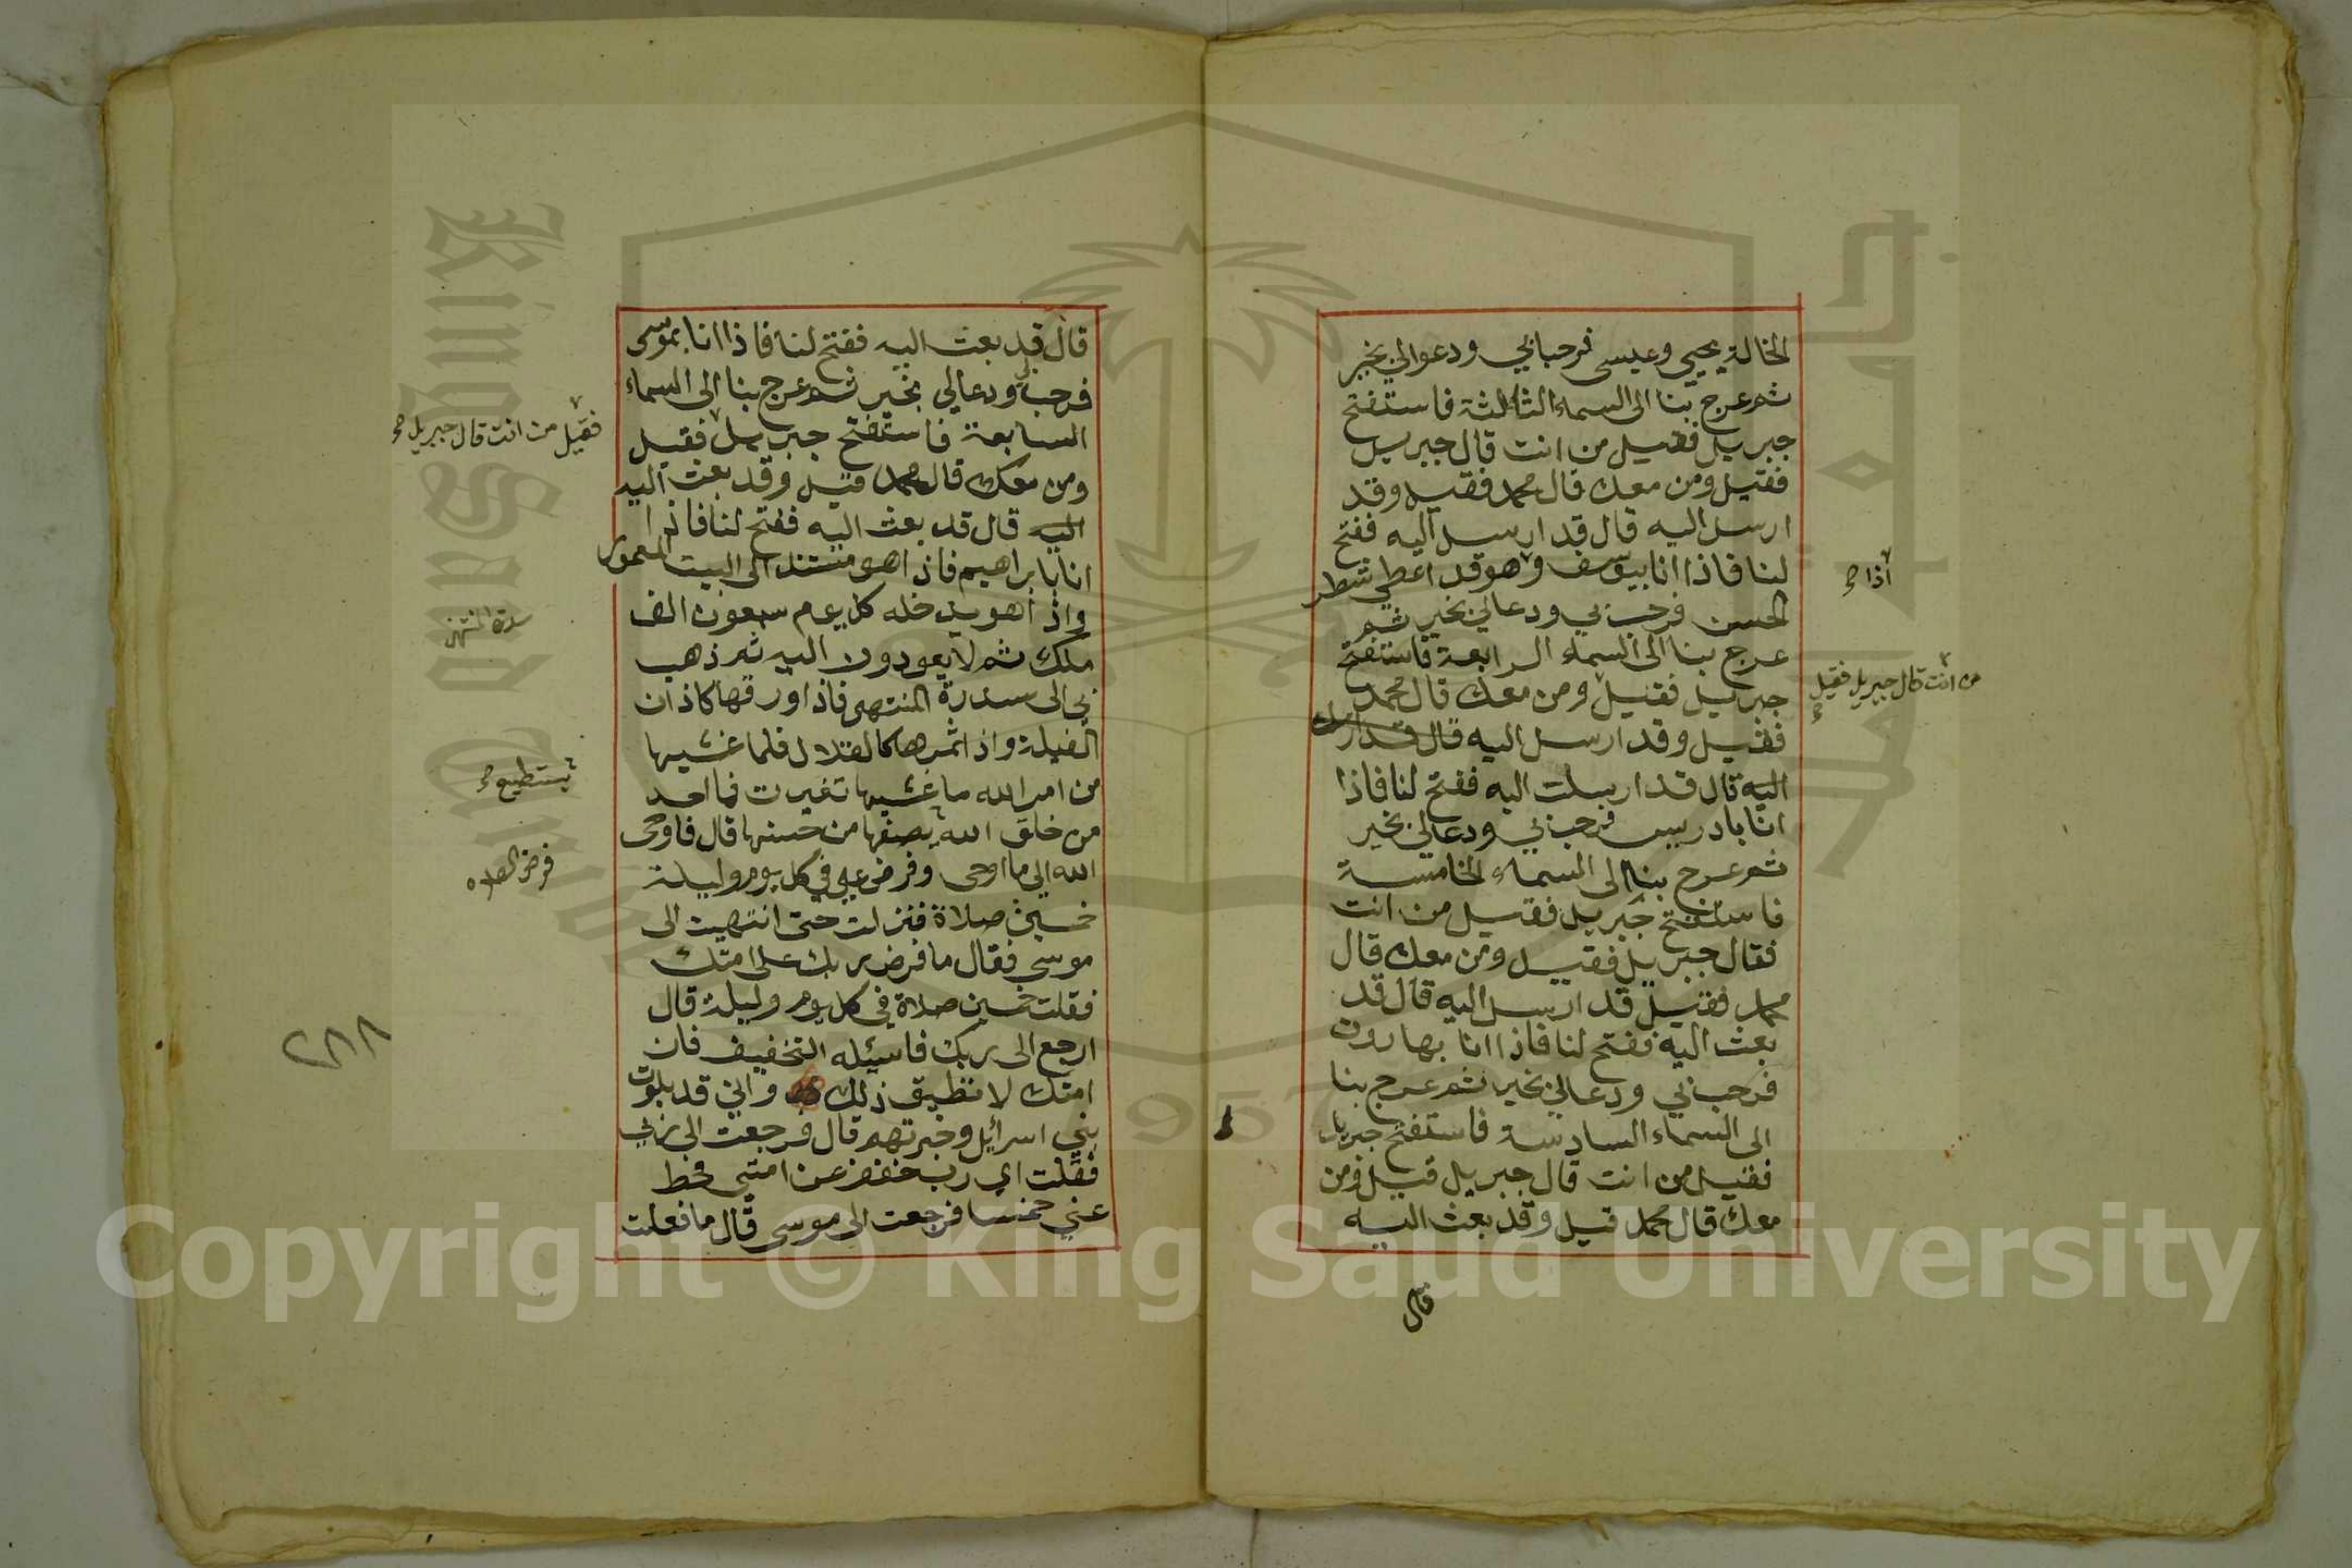 الخالة يحيى وعيسى فرحبا بي ودعوا لي بخير
ثم عرج بنا الى السماء الثالثة فاستفتح
جبريل فقيل من انت قال جبريل
فقيل ومن معك قال محمد فقيل وقد
ارسل اليه قال قد ارسل اليه ففتح
لنا فاذا انا بيوسف وهو قد اعطي شطر
الحسن فرحب بي ودعا لي بخير ثم
عرج بنا الى السماء الرابعة فاستفتح
جبريل فقيل ومن معك قال محمد
فقيل وقد ارسل اليه قال قد ارسل
اليه قال قد ارسلت اليه ففتح لنا فاذا
انا بادريس فرحب بي ودعا لي بخير
ثم عرج بنا الى السماء الخامسة
فاستفتح جبريل فقيل من انت
فقال جبريل فقيل ومن معك قال
محمد فقيل قد ارسل اليه قال قد
بعث اليه ففتح لنا فاذا انا بهارون
فرحب بي ودعا لي بخير ثم عرج بنا
الى السماء السادسة فاستفتح جبريل
فقيل من انت قال جبريل قيل ومن
معك قال محمد قيل وقد بعث اليه
قال
اذا صح
من انت قال جبريل فقيل صح
قال قد بعث اليه ففتح لنا فاذا انا بموسى
فرحب بي ودعا لي بخير ثم عرج بنا الى السماء
السابعة فاستفتح جبريل فقيل
ومن معك قال محمد قيل وقد بعث اليه
اليه قال قد بعث اليه ففتح لنا فاذا
انا بابراهيم فاذا هو مستند الى البيت المعمور
واذا هو يدخله كل يوم سبعون الف
ملك ثم لا يعودون اليه ثم ذهب
بي الى سدرة المنتهى فاذا ورقها كاذان
الفيلة واذا ثمرها كالقلال فلما غشيها
من امر الله ما غشيها تغيرت فما احد
من خلق الله يصفها من حسنها قال فاوحى
الله الي ما اوحى وفرض علي في كل يوم وليلة
خمسين صلاة فنزلت حتى انتهيت الى
موسى فقال ما فرض ربك على امتك
فقلت خمسين صلاة في كل يوم وليلة قال
ارجع الى ربك فاسئله التخفيف فان
امتك لا تطيق ذلك واني قد بلوت
بني اسرائيل وخبرتهم قال فرجعت الى ربي
فقلت اي رب خفف عن امتي فحط
عني خمسا فرجعت الى موسى قال ما فعلت
فقيل من انت قال جبريل صح
سدرة المنتهى
يستطيع صح
فرض الصلاه
٢٨٨
King Saud University
1957
Copyright © King Saud University